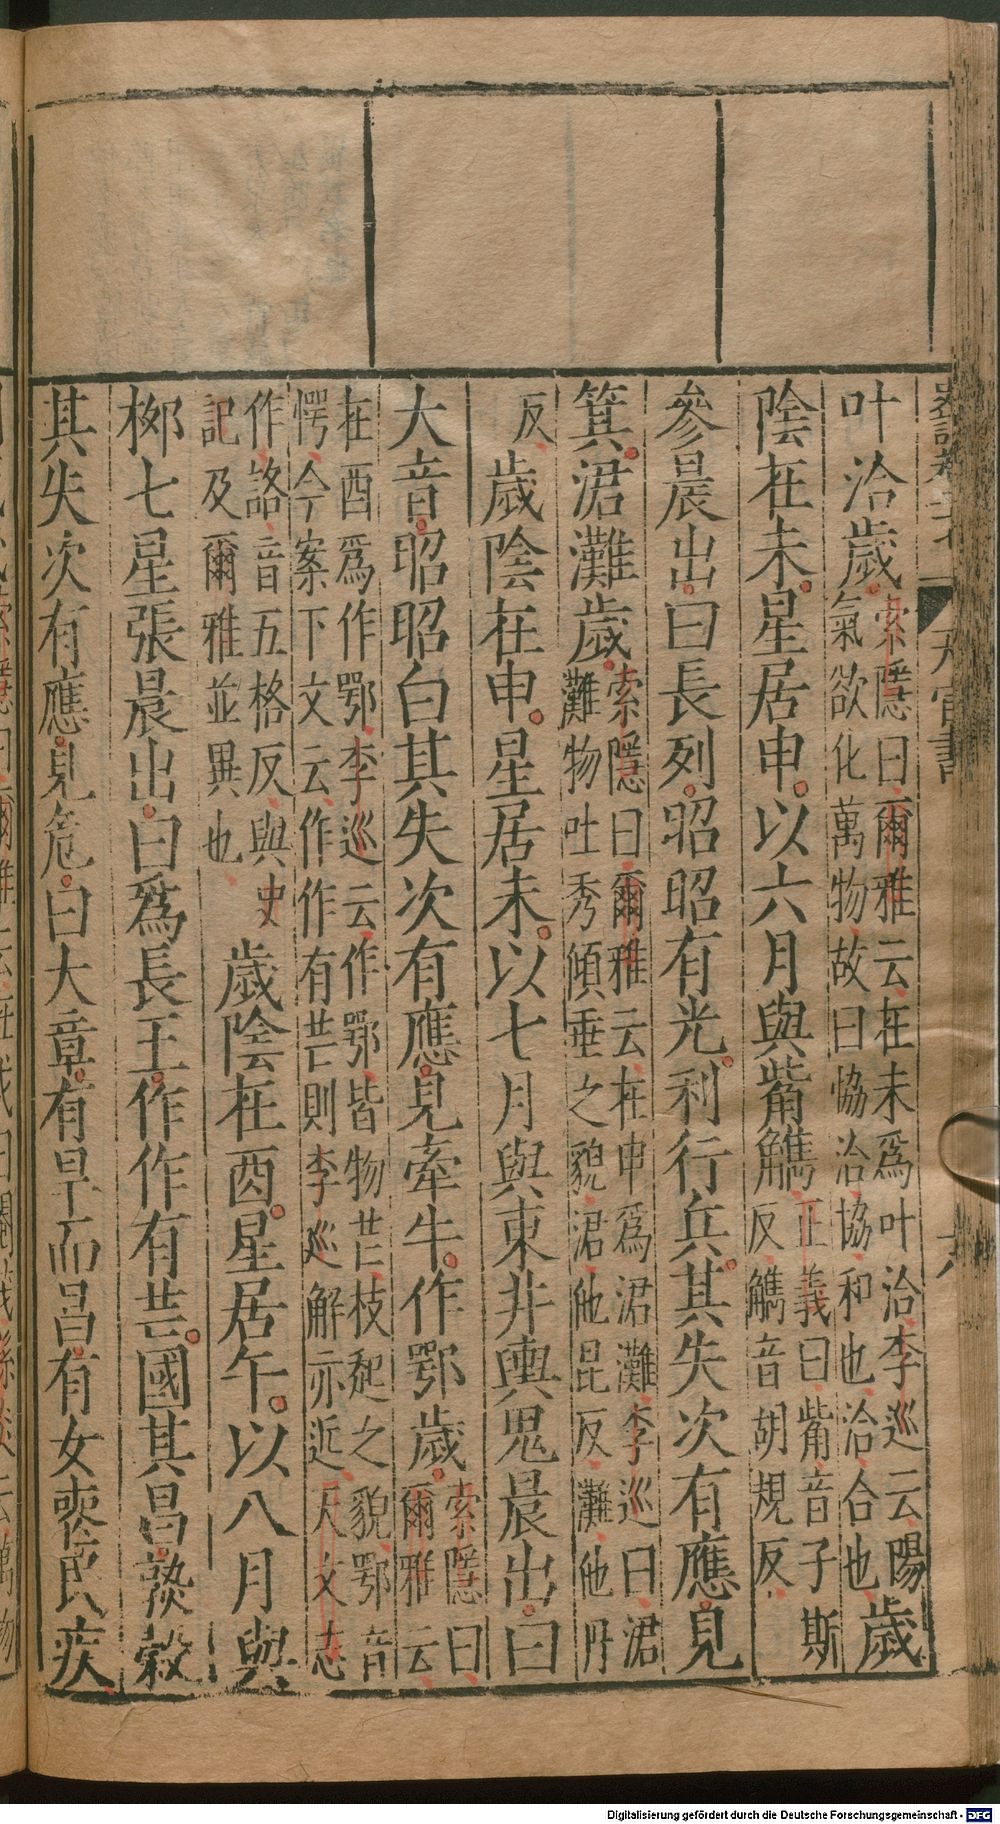 史記卷二十七 天官書 十八
叶洽歲索隱曰爾雅云在未爲叶洽李巡云陽氣欲化萬物故曰協洽協和也洽合也歲
陰在未星居申以六月與觜觿正義曰觜音子斯反觿音胡規反
參晨出曰長列昭昭有光利行兵其失次有應見
箕涒灘歲索隱曰爾雅云在申爲涒灘李巡曰涒灘物吐秀傾垂之貌涒他昆反灘他丹
反歲陰在申星居未以七月與東井輿鬼晨出曰
大音昭昭白其失次有應見牽牛作鄂歲索隱曰爾雅云
在酉爲作鄂李巡云作鄂皆物芒枝起之貌鄂音愕今案下文云作作有芒則李巡解亦近天文志
作詻音五格反與史記及爾雅並異也歲陰在酉星居午以八月與
桺七星張晨出曰爲長王作作有芒國其昌熟穀
其失次有應見危曰大章有旱而昌有女喪民疾
Digitalisierung gefördert durch die Deutsche Forschungsgemeinschaft - DFG